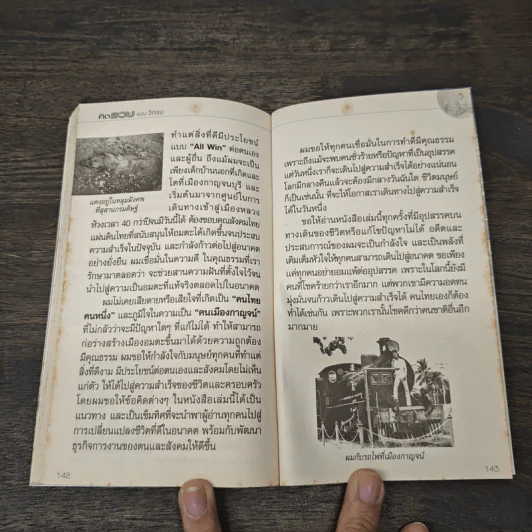 คิดรวย แบบ วิกรม
แดงอยู่ในหลุมฝังศพ
ที่สุสานกามดิษฐ์
ทำแต่สิ่งที่ดีมีประโยชน์
แบบ "All Win" ต่อตนเอง
และผู้อื่น ถึงแม้ผมจะเป็น
เพียงเด็กบ้านนอกที่เกิดและ
โตที่เมืองกาญจนบุรี และ
เริ่มต้นมาจากศูนย์ในการ
เดินทางเข้าสู่เมืองหลวง
ห้วงเวลา 40 กว่าปีจนมีวันนี้ได้ ต้องขอบคุณสังคมไทย
แผ่นดินไทยที่สนับสนุนให้อมตะได้เกิดขึ้นจนประสบ
ความสำเร็จในปัจจุบัน และกำลังก้าวต่อไปสู่อนาคต
อย่างยั่งยืน ผมเชื่อมั่นในความดี ในคุณธรรมที่เรา
รักษามาตลอดว่า จะช่วยสานความฝันที่ตั้งใจไว้จน
นำไปสู่ความเป็นอมตะที่แท้จริงตลอดไปในอนาคต
ผมไม่เคยเสียดายหรือเสียใจที่เกิดเป็น "คนไทย
คนหนึ่ง" และภูมิใจในความเป็น "คนเมืองกาญจน์"
ที่ไม่กลัวว่าจะมีปัญหาใดๆ ที่แก้ไม่ได้ ทำให้สามารถ
ก่อร่างสร้างเมืองอมตะขึ้นมาได้ด้วยความถูกต้อง
มีคุณธรรม ผมขอให้กำลังใจกับมนุษย์ทุกคนที่ทำแต่
สิ่งที่ดีงาม มีประโยชน์ต่อตนเองและสังคมโดยไม่เห็น
แก่ตัว ให้ได้ไปสู่ความสำเร็จของชีวิตและครอบครัว
โดยผมขอให้ข้อคิดต่างๆ ในหนังสือเล่มนี้ได้เป็น
แนวทาง และเป็นเข็มทิศที่จะนำพาผู้อ่านทุกคนไปสู่
การเปลี่ยนแปลงชีวิตที่ดีในอนาคต พร้อมกับพัฒนา
ธุรกิจการงานของตนและสังคมให้ดีขึ้น
142
ผมขอให้ทุกคนเชื่อมั่นในการทำดีมีคุณธรรม
เพราะถึงแม้จะพบคนชั่วร้ายหรือปัญหาที่เป็นอุปสรรค
แต่วันหนึ่งเราก็จะเดินไปสู่ความสำเร็จได้อย่างแน่นอน
โลกมีกลางคืนแล้วจะต้องมีกลางวันฉันใด ชีวิตมนุษย์
ก็เป็นเช่นนั้น ที่จะให้โอกาสเราเดินทางไปสู่ความสำเร็จ
ได้ในวันหนึ่ง
ขอให้อ่านหนังสือเล่มนี้ทุกครั้งที่มีอุปสรรคบน
ทางเดินของชีวิตหรือแก้ไขปัญหาไม่ได้ อดีตและ
ประสบการณ์ของผมจะเป็นกำลังใจ และเป็นพลังที่
เติมเต็มหัวใจให้ทุกคนสามารถเดินไปสู่อนาคต ขอเพียง
แค่ทุกคนอย่ายอมแพ้ต่ออุปสรรค เพราะในโลกนี้ยังมี
คนที่โชคร้ายกว่าเราอีกมาก แต่พวกเขามีความอดทน
มุ่งมั่นจนก้าวเดินไปสู่ความสำเร็จได้ คนไทยเองก็ต้อง
ทำได้เช่นกัน เพราะพวกเรานั้นโชคดีกว่าคนชาติอื่นอีก
มากมาย
ผมกับรถไฟที่เมืองกาญจน์
143